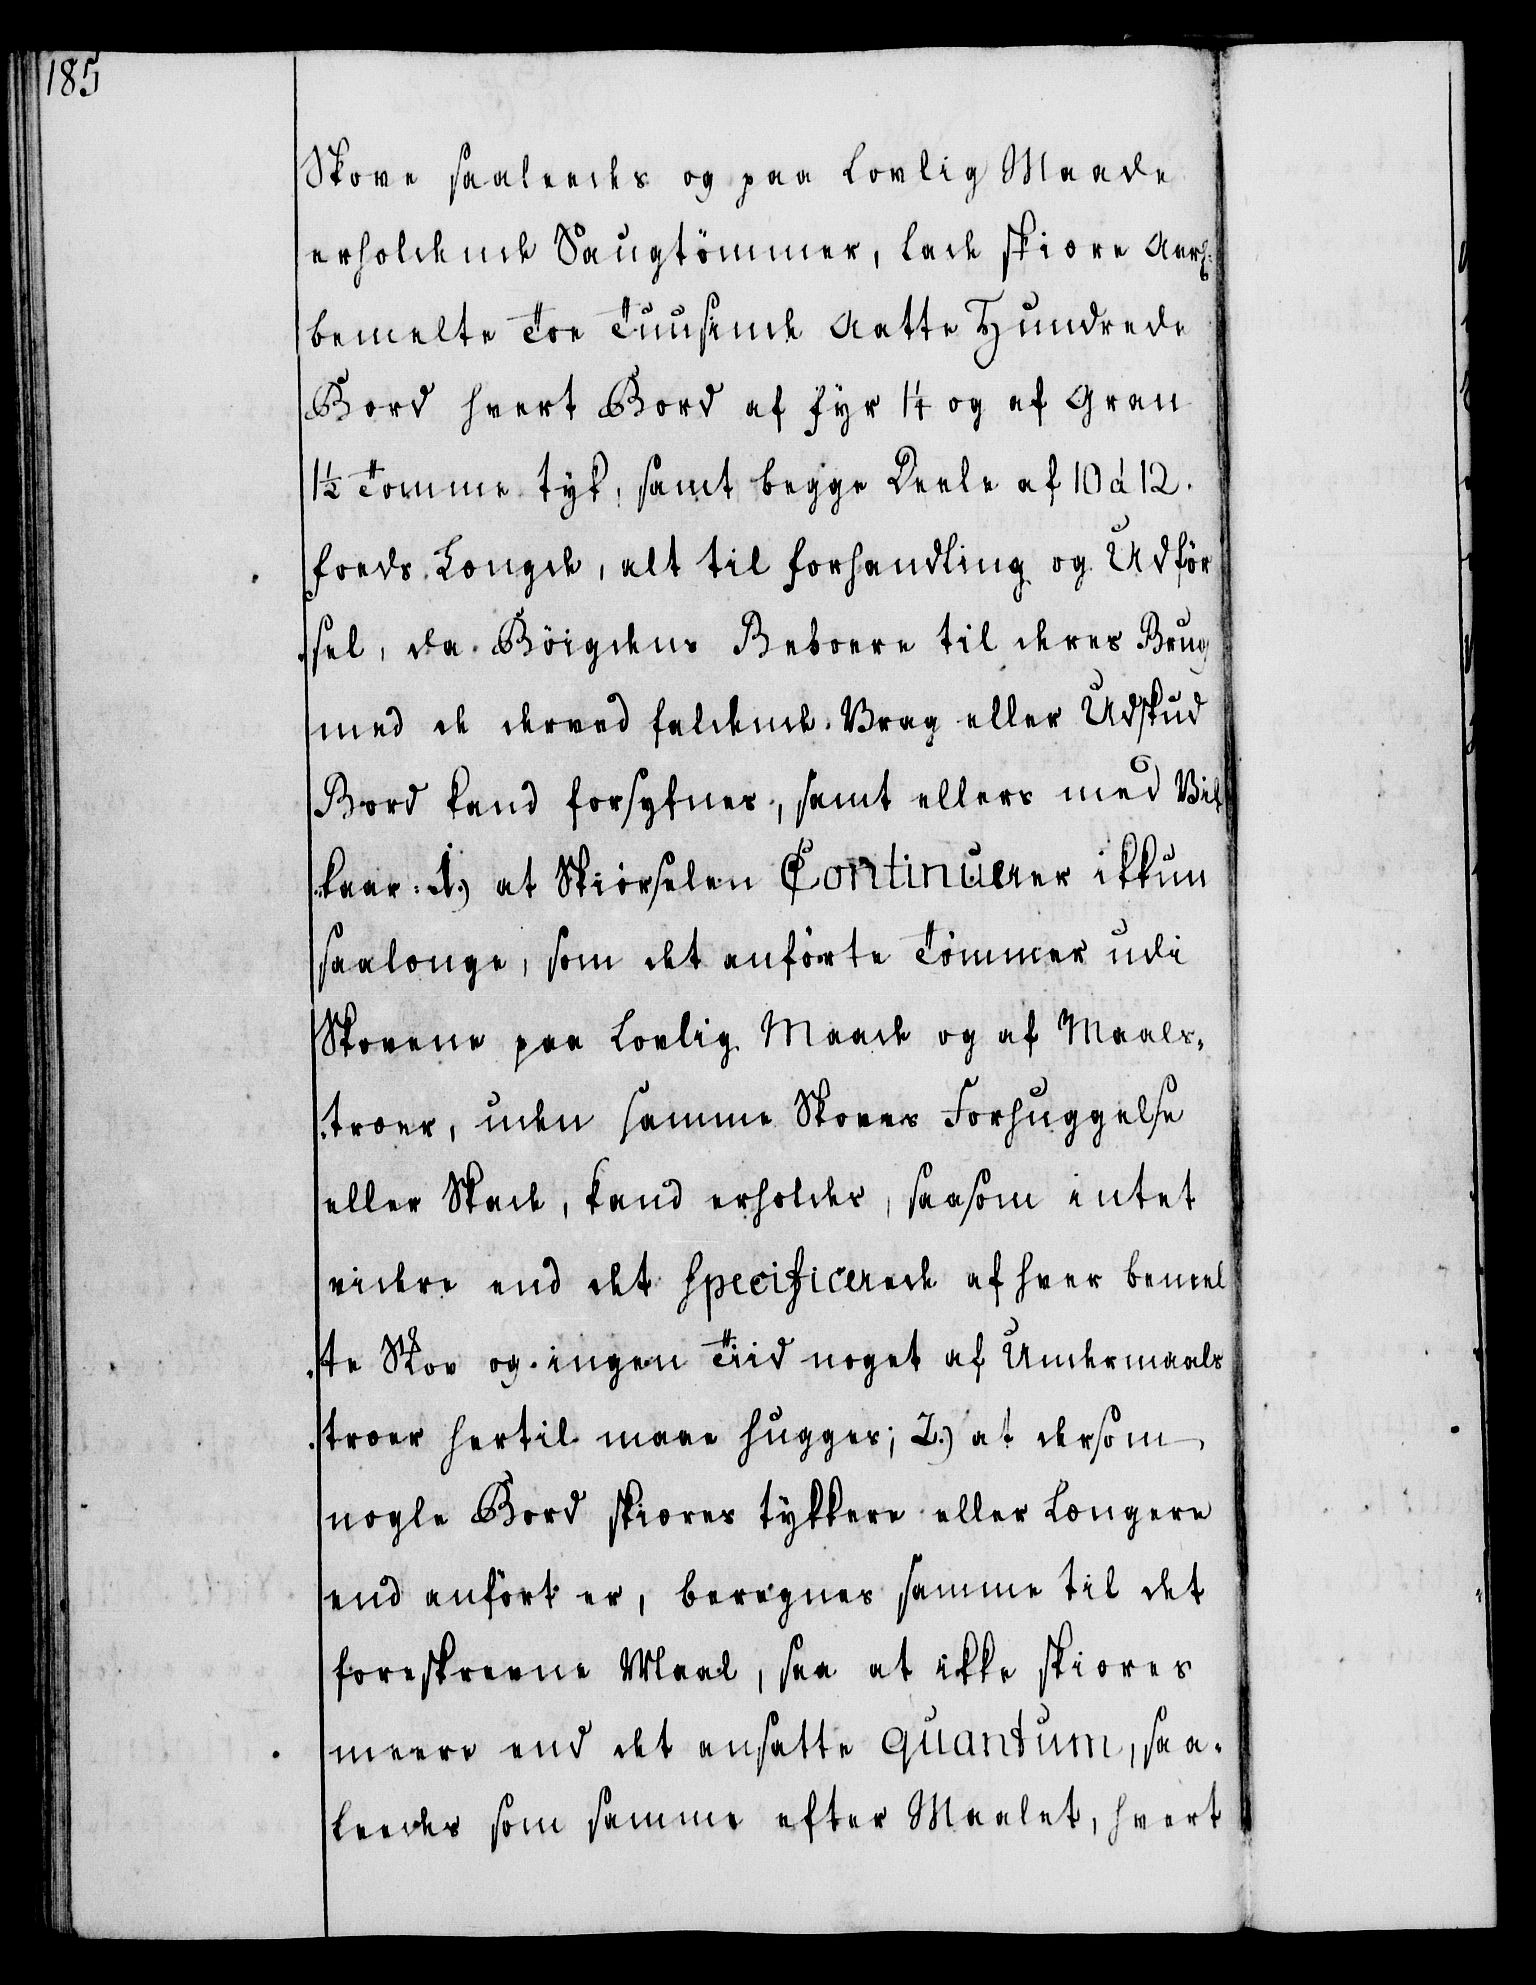 185
Skove saaleedes og paa lovlig Maade
erholdende Saugtömmer, lade skiære Aarl:
bemelte Toe Tuusinde Aatte Hundrede
Bord hvert Bord af fyr 1¼ og af Gran
1½ Tomme tyk, samt begge Deele af 10 à 12.
foeds Længde, alt til forhandling og Udför
sel, da Böigdens Beboere til deres Brug
med de derved faldende Vrag eller Udskud
Bord kand forsyfnes, samt ellers med Vil
kaar: 1.) at Skiærselen Continuerer ikkun
saalænge, som det anförte Tömmer udi
Skovene paa Lovlig Maade og af Maals,
træer, uden samme Skoves Forhuggelse
eller Skade, kand erholdes, saasom intet
videre end det specificerede af hver bemel
te Skov og ingen Tiid noget af Undermaals
træer hertil maae hugges; 2.) at dersom
nogle Bord skiæres tykkere eller Længere
end anfört er, beregnes samme til det
foreskrevne Maal, saa at ikke skiæres
meere end det ansatte quantum, saa,
leedes som samme efter Maalet, hvert